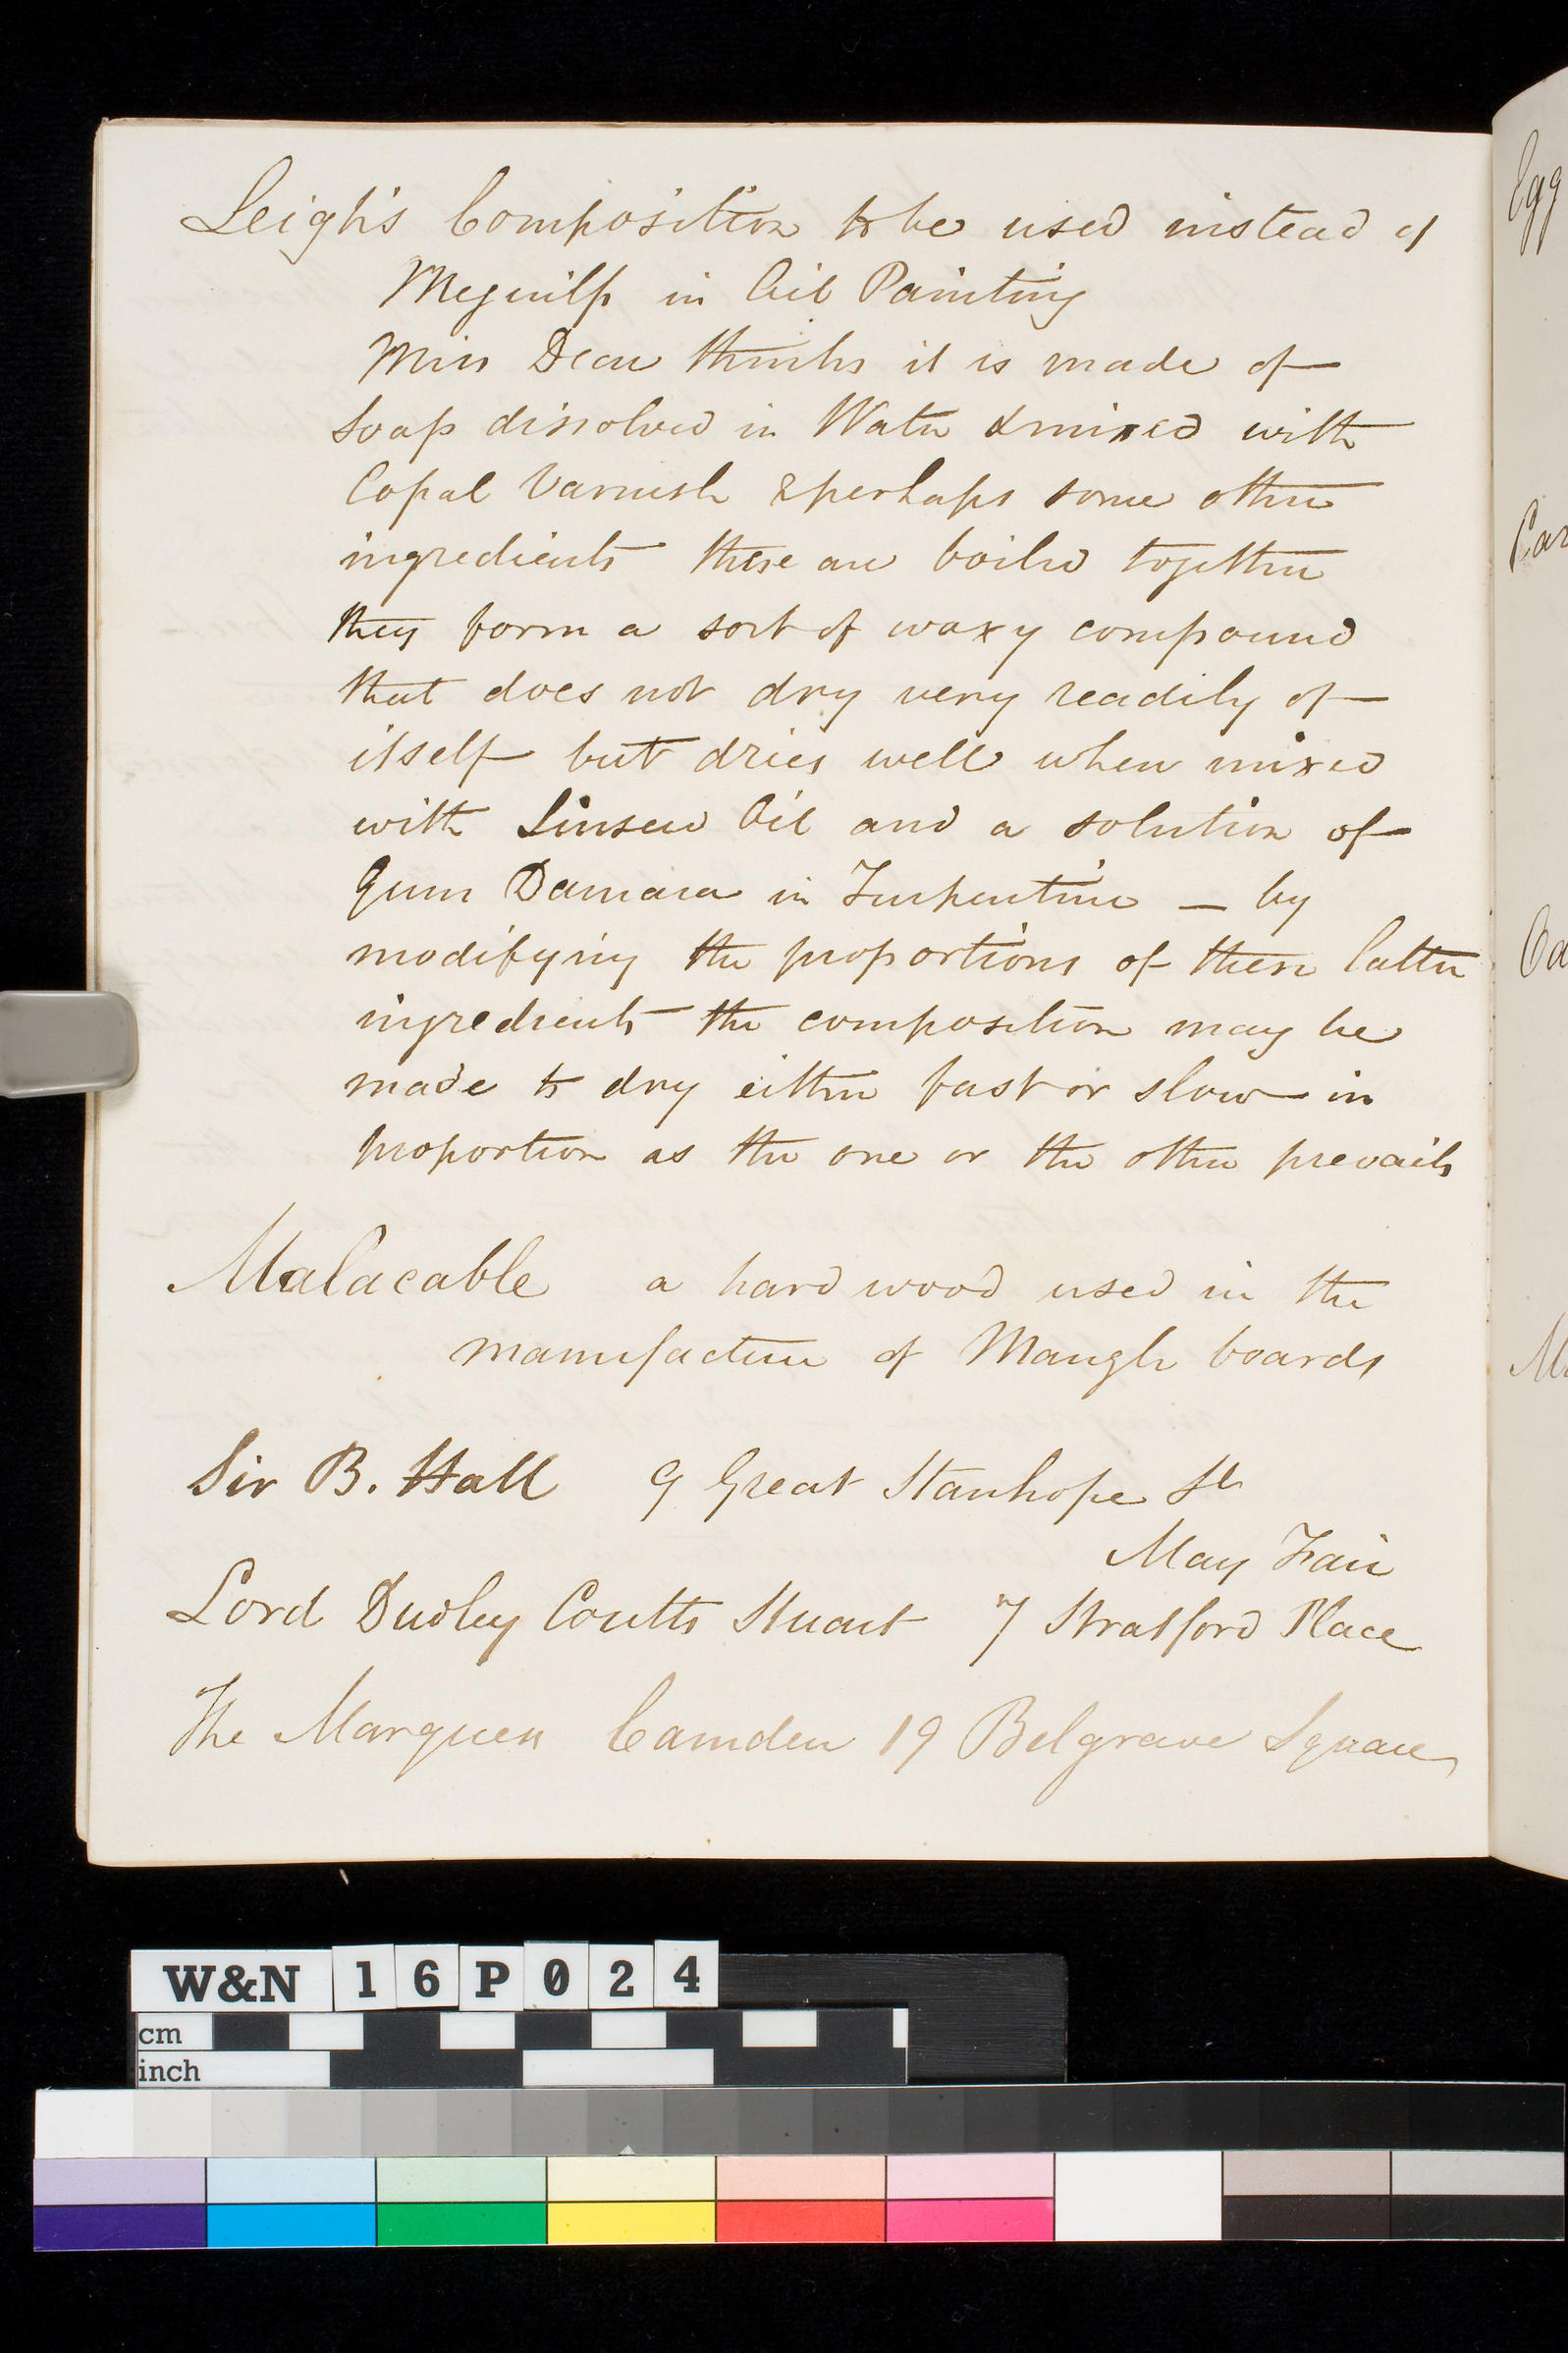 Leigh's Composition to be used instead of
Meguilp in Oil Painting
Miss Dean thinks it is made of
Soap dissolved in Water & mixed with
Copal Varnish & perhaps some other
ingredients these are boiled together
they form a sort of waxy compound
that does not dry very readily of
itself but dries well when mixed
with Linseed Oil and a solution of
Gum Damara in Turpentine — by
modifying the proportions of these latter
ingredients the composition may be
made to dry either fast or slow in
proportion as the one or the other prevails
Malacable a hard wood used in the
manufacture of Mangle boards
Sir B. Hall 9 Great Stanhope St
May Fair
Lord Dudley Coutts Stuart 7 Stratford Place
The Marquess Camden 19 Belgrave Square
Egg
Car
Ca
W&N 16P024
cm
inch